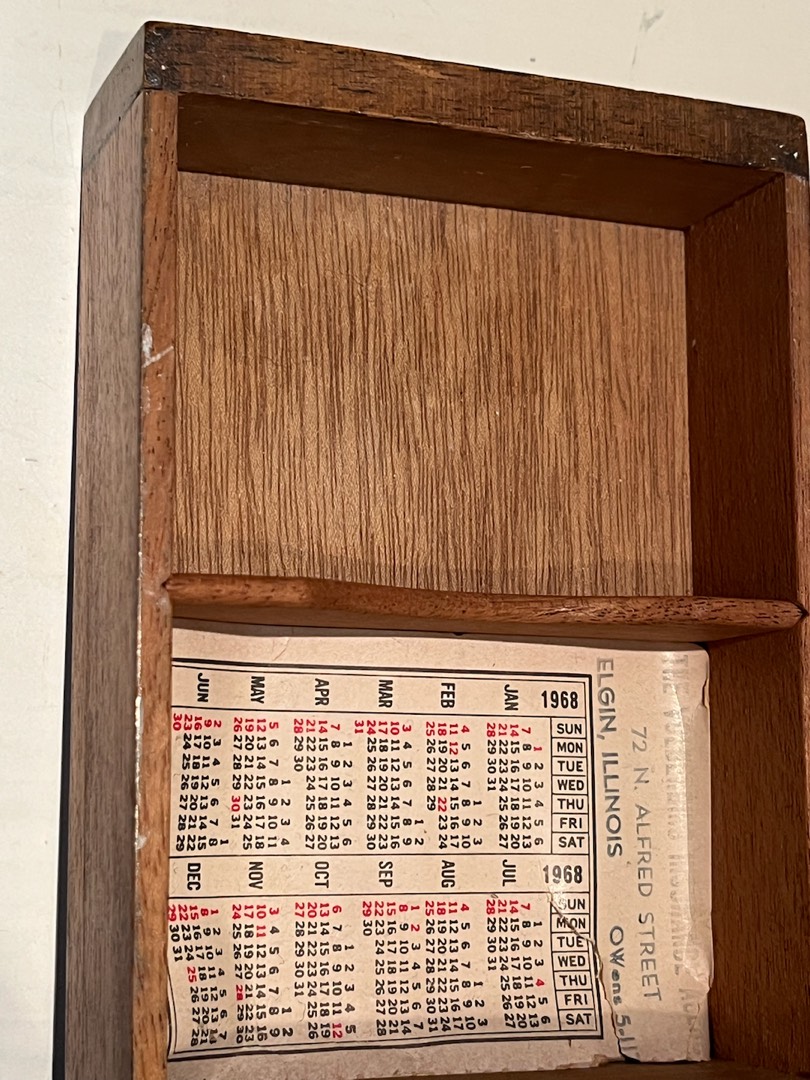 THE INSURANCE
72 N. ALFRED STREET
ELGIN, ILLINOIS OWens 5-11
1968 SUN MON TUE WED THU FRI SAT
JAN
1 2 3 4 5 6
7 8 9 10 11 12 13
14 15 16 17 18 19 20
21 22 23 24 25 26 27
28 29 30 31
FEB
1 2 3
4 5 6 7 8 9 10
11 12 13 14 15 16 17
18 19 20 21 22 23 24
25 26 27 28 29
MAR
1 2
3 4 5 6 7 8 9
10 11 12 13 14 15 16
17 18 19 20 21 22 23
24 25 26 27 28 29 30
31
APR
1 2 3 4 5 6
7 8 9 10 11 12 13
14 15 16 17 18 19 20
21 22 23 24 25 26 27
28 29 30
MAY
1 2 3 4
5 6 7 8 9 10 11
12 13 14 15 16 17 18
19 20 21 22 23 24 25
26 27 28 29 30 31
JUN
1
2 3 4 5 6 7 8
9 10 11 12 13 14 15
16 17 18 19 20 21 22
23 24 25 26 27 28 29
30
1968 SUN MON TUE WED THU FRI SAT
JUL
1 2 3 4 5 6
7 8 9 10 11 12 13
14 15 16 17 18 19 20
21 22 23 24 25 26 27
28 29 30 31
AUG
1 2 3
4 5 6 7 8 9 10
11 12 13 14 15 16 17
18 19 20 21 22 23 24
25 26 27 28 29 30 31
SEP
1 2 3 4 5 6 7
8 9 10 11 12 13 14
15 16 17 18 19 20 21
22 23 24 25 26 27 28
29 30
OCT
1 2 3 4 5
6 7 8 9 10 11 12
13 14 15 16 17 18 19
20 21 22 23 24 25 26
27 28 29 30 31
NOV
1 2
3 4 5 6 7 8 9
10 11 12 13 14 15 16
17 18 19 20 21 22 23
24 25 26 27 28 29 30
DEC
1 2 3 4 5 6 7
8 9 10 11 12 13 14
15 16 17 18 19 20 21
22 23 24 25 26 27 28
29 30 31